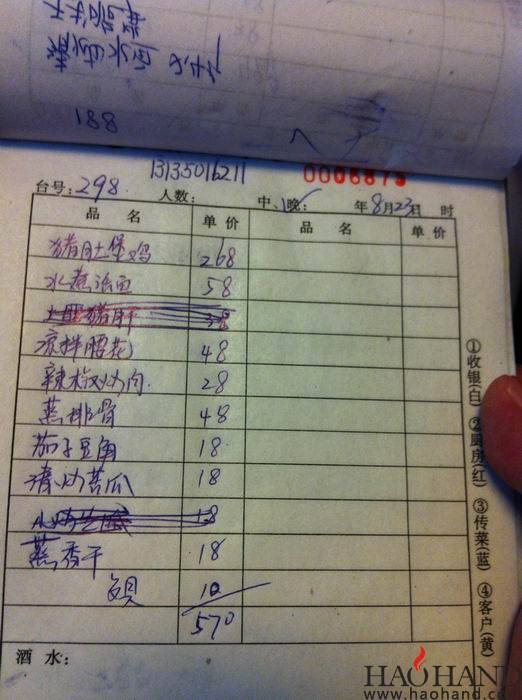 188
13135016211
0006873
台号：298 人数： 中、晚： 年8月23日 时
品名 单价 品名 单价
猪肚堡鸡 268
水煮活鱼 58
土匪猪肝 38
凉拌腰花 48
辣椒炒肉 28
蒸排骨 48
茄子豆角 18
清炒苦瓜 18
小炒 18
蒸香干 18
10
570
酒水：
①收银(白) ②厨房(红) ③传菜(蓝) ④客户(黄)
HAOHAND
www.haohand.co